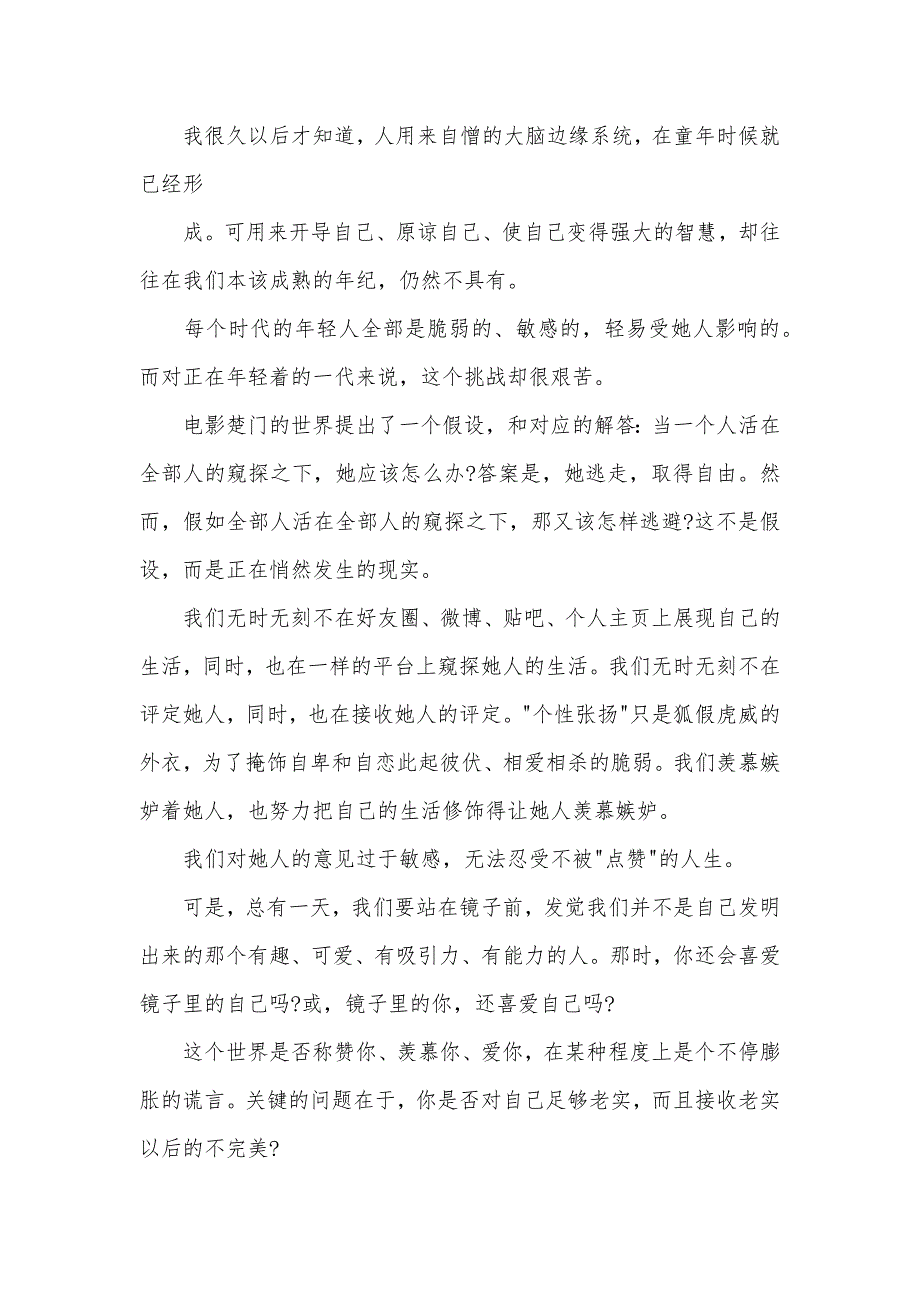 我很久以后才知道，人用来自憎的大脑边缘系统，在童年时候就
已经形
成。可用来开导自己、原谅自己、使自己变得强大的智慧，却往
往在我们本该成熟的年纪，仍然不具有。
每个时代的年轻人全部是脆弱的、敏感的，轻易受她人影响的。
而对正在年轻着的一代来说，这个挑战却很艰苦。
电影楚门的世界提出了一个假设，和对应的解答：当一个人活在
全部人的窥探之下，她应该怎么办?答案是，她逃走，取得自由。然
而，假如全部人活在全部人的窥探之下，那又该怎样逃避?这不是假
设，而是正在悄然发生的现实。
我们无时无刻不在好友圈、微博、贴吧、个人主页上展现自己的
生活，同时，也在一样的平台上窥探她人的生活。我们无时无刻不在
评定她人，同时，也在接收她人的评定。"个性张扬"只是狐假虎威的
外衣，为了掩饰自卑和自恋此起彼伏、相爱相杀的脆弱。我们羡慕嫉
妒着她人，也努力把自己的生活修饰得让她人羡慕嫉妒。
我们对她人的意见过于敏感，无法忍受不被"点赞"的人生。
可是，总有一天，我们要站在镜子前，发觉我们并不是自己发明
出来的那个有趣、可爱、有吸引力、有能力的人。那时，你还会喜爱
镜子里的自己吗?或，镜子里的你，还喜爱自己吗?
这个世界是否称赞你、羡慕你、爱你，在某种程度上是个不停膨
胀的谎言。关键的问题在于，你是否对自己足够老实，而且接收老实
以后的不完美?